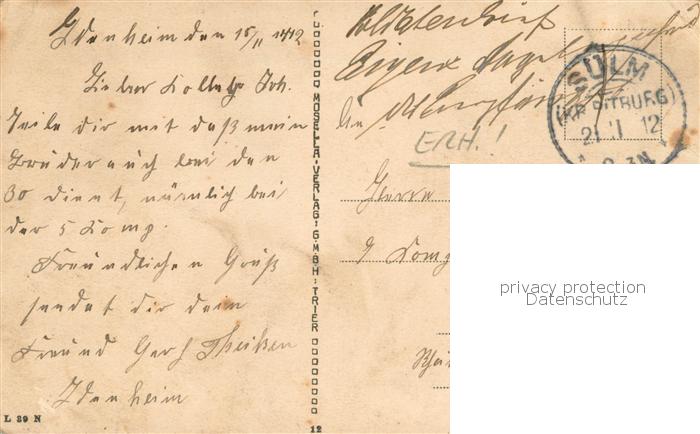 Idenheim den 15/II 1912
Lieber Kolleg Joh.
Teile dir mit daß mein
Bruder auch bei den
30 dient, nämlich bei
der 5 Komp.
Freundlichen Gruß
sendet dir dein
Freund Gerh Theisen
Idenheim
L 89 N
MOSELLA-VERLAG: G.M.B.H: TRIER
12
Soldatenbrief
Eigene Angelegenheit
An
d. Empfängers
SÜLM
(KR. BITBURG)
21.II 12
ERH.!
Herrn
9 Komp
privacy protection
Datenschutz